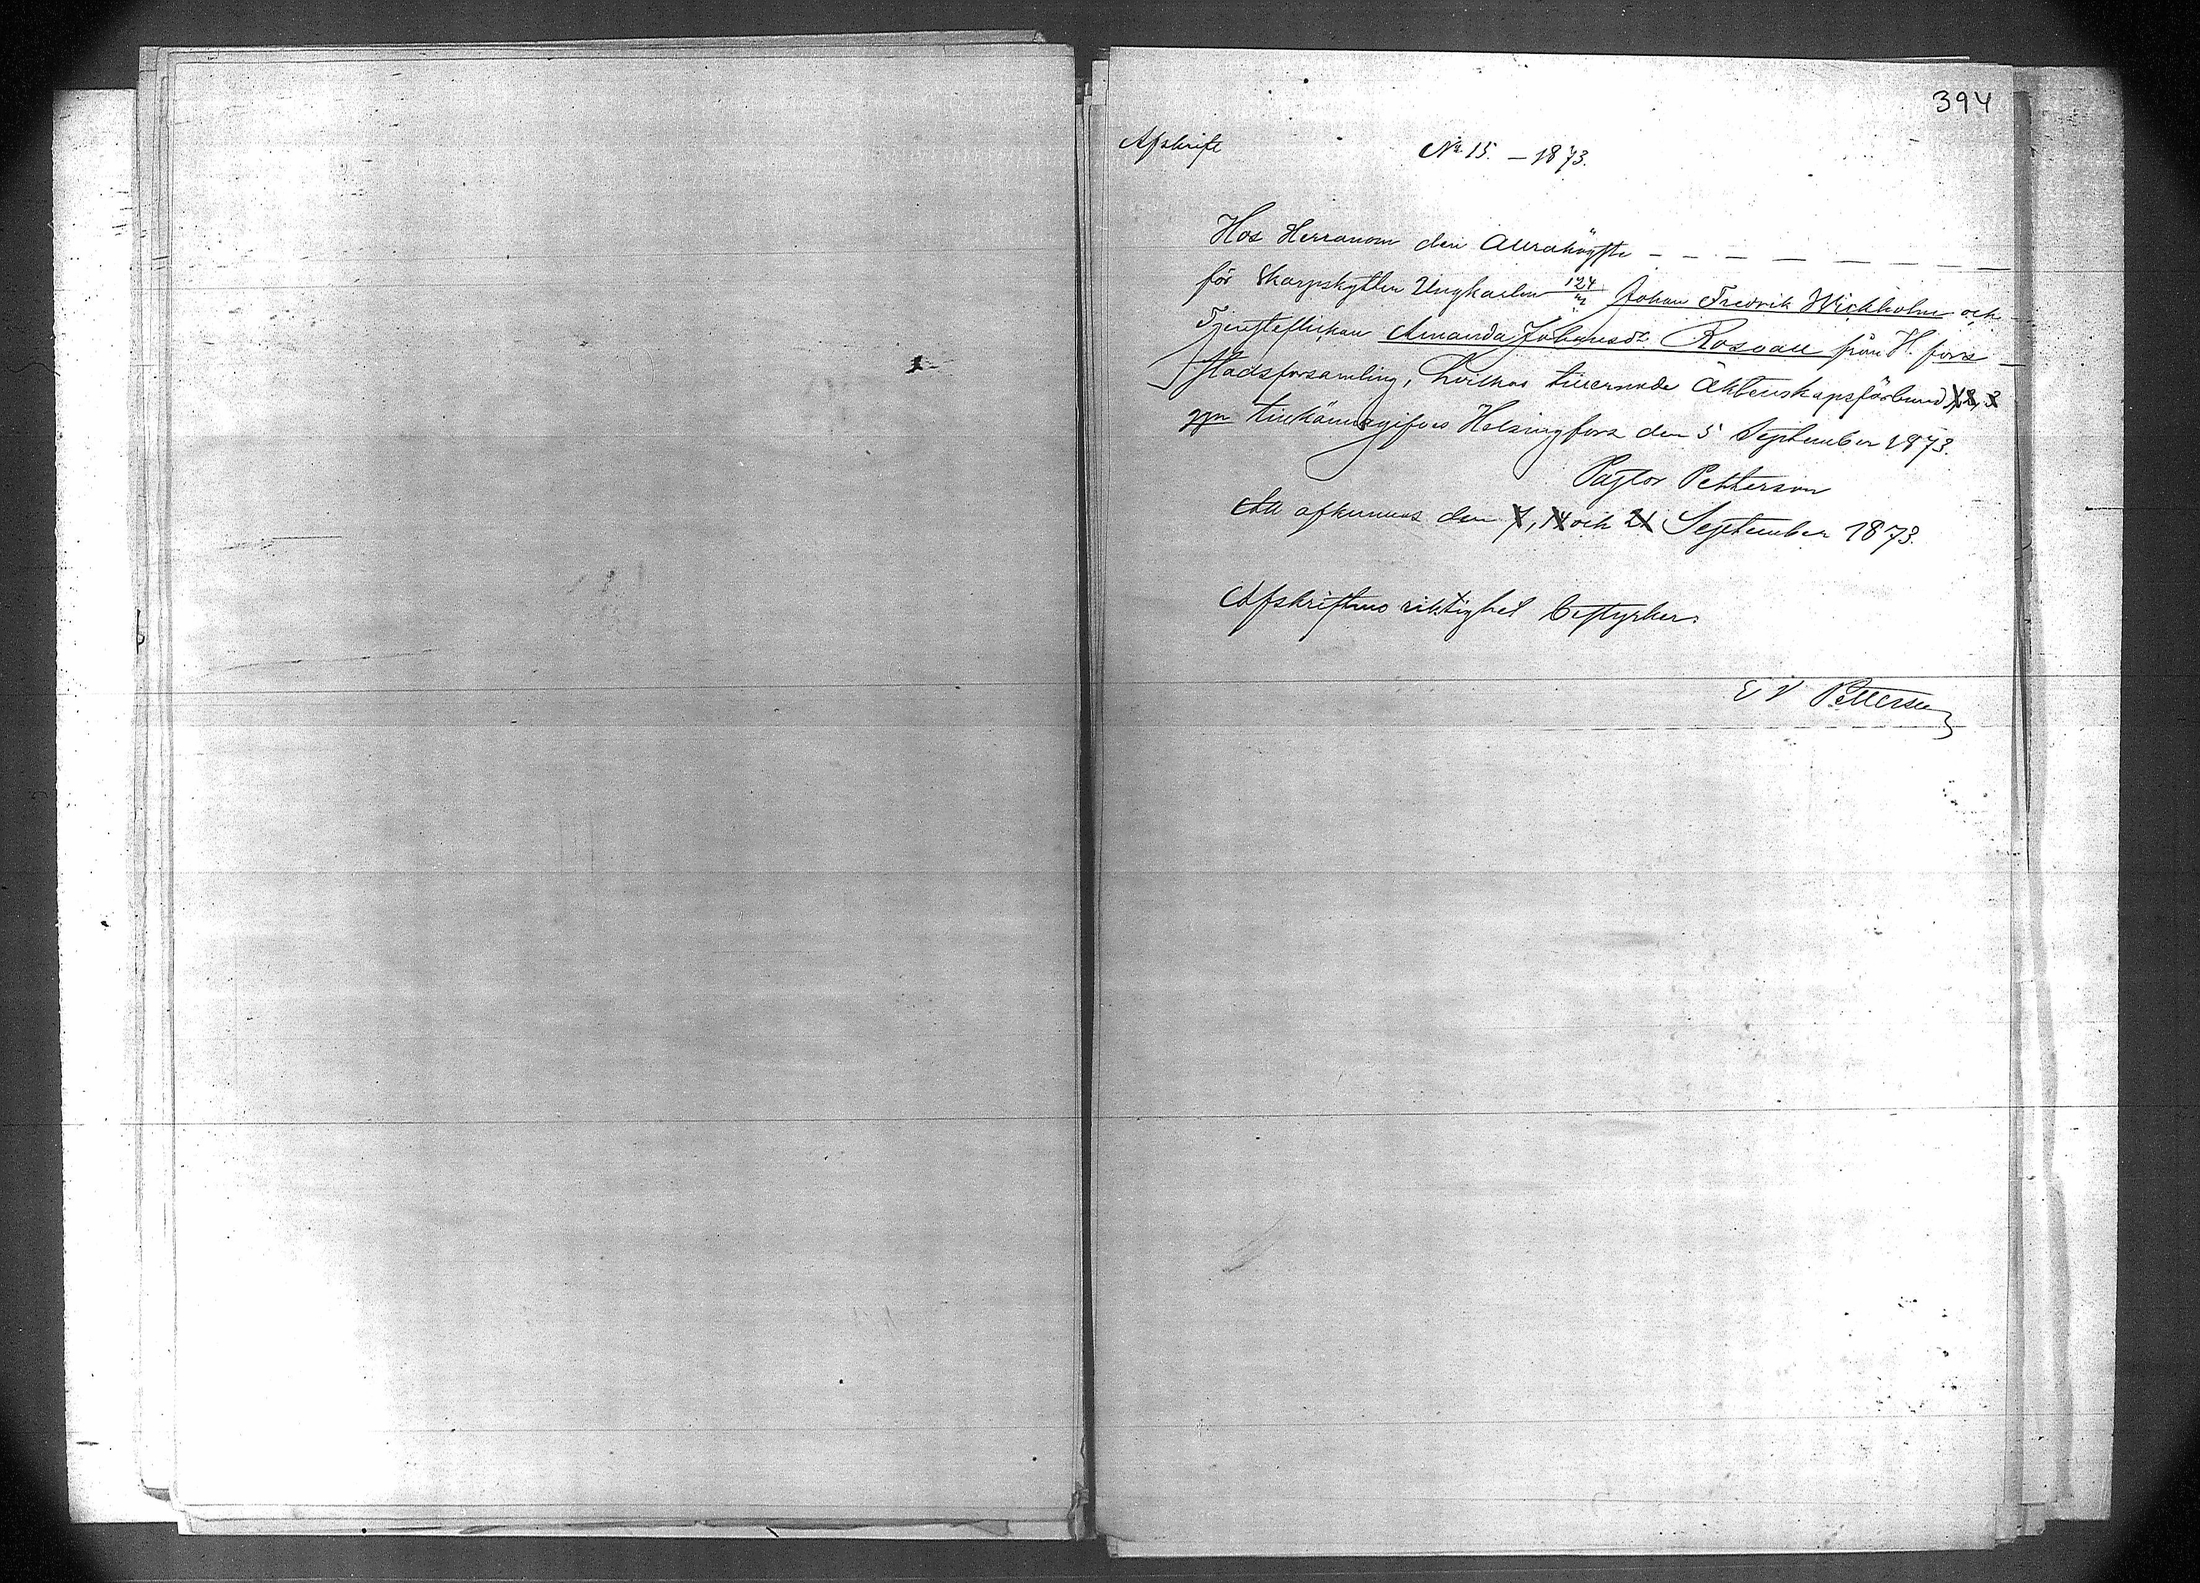 394
Afskrift
No 15. – 1873.
Hos Herranom den Allrahögste – – – – – –
för Skarpskytten Ungkarlen 124 Johan Fredrik Wickholm och
Tjensteflickan Amanda Johansdr Rosvall från H. fors
Stadsförsamling, hvilkas tillernade Äktenskapsförbund 1, 2, 3
tillkännagifves Helsingfors den 5 September 1873.
Pastor Petterson
All afkunnas den 7, 14 och 21 September 1873.
Afskriftens riktighet bestyrker:
E V Petterson